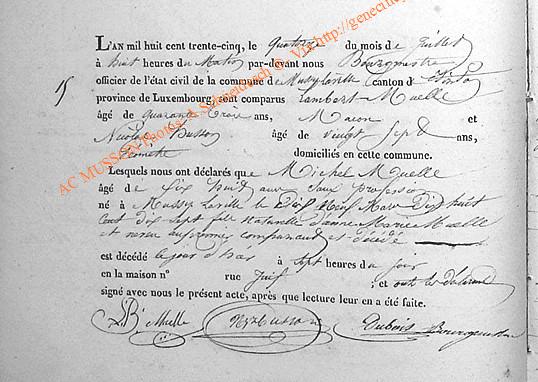 L'AN mil huit cent trente-cinq, le quatorze du mois de juillet
à huit heures du Matin par-devant nous Bourgmestre
officier de l'état civil de la commune de Mussy laville canton d'
15
province de Luxembourg, sont comparus Lambert Muelle
âgé de quarante trois ans, Macon et
Nicolas Busson âgé de vingt sept ans,
domiciliés en cette commune.
Lesquels nous ont déclarés que Michel Muelle
âgé de dix huit ans sans profession
né à Mussy laville le Mars Dix huit
cent dix sept fils naturelle d'anne Marie Muelle
et neveu au premier comparant est décédé
est décédé le jour d'hier à sept heures du soir
en la maison n° rue ; et ont les déclarant
signé avec nos le présent acte, après que lecture leur en a été faite.
Muelle Busson Dubois Bourgmestre
AC MUSSON Photos A. Schneidesch
http://genecind